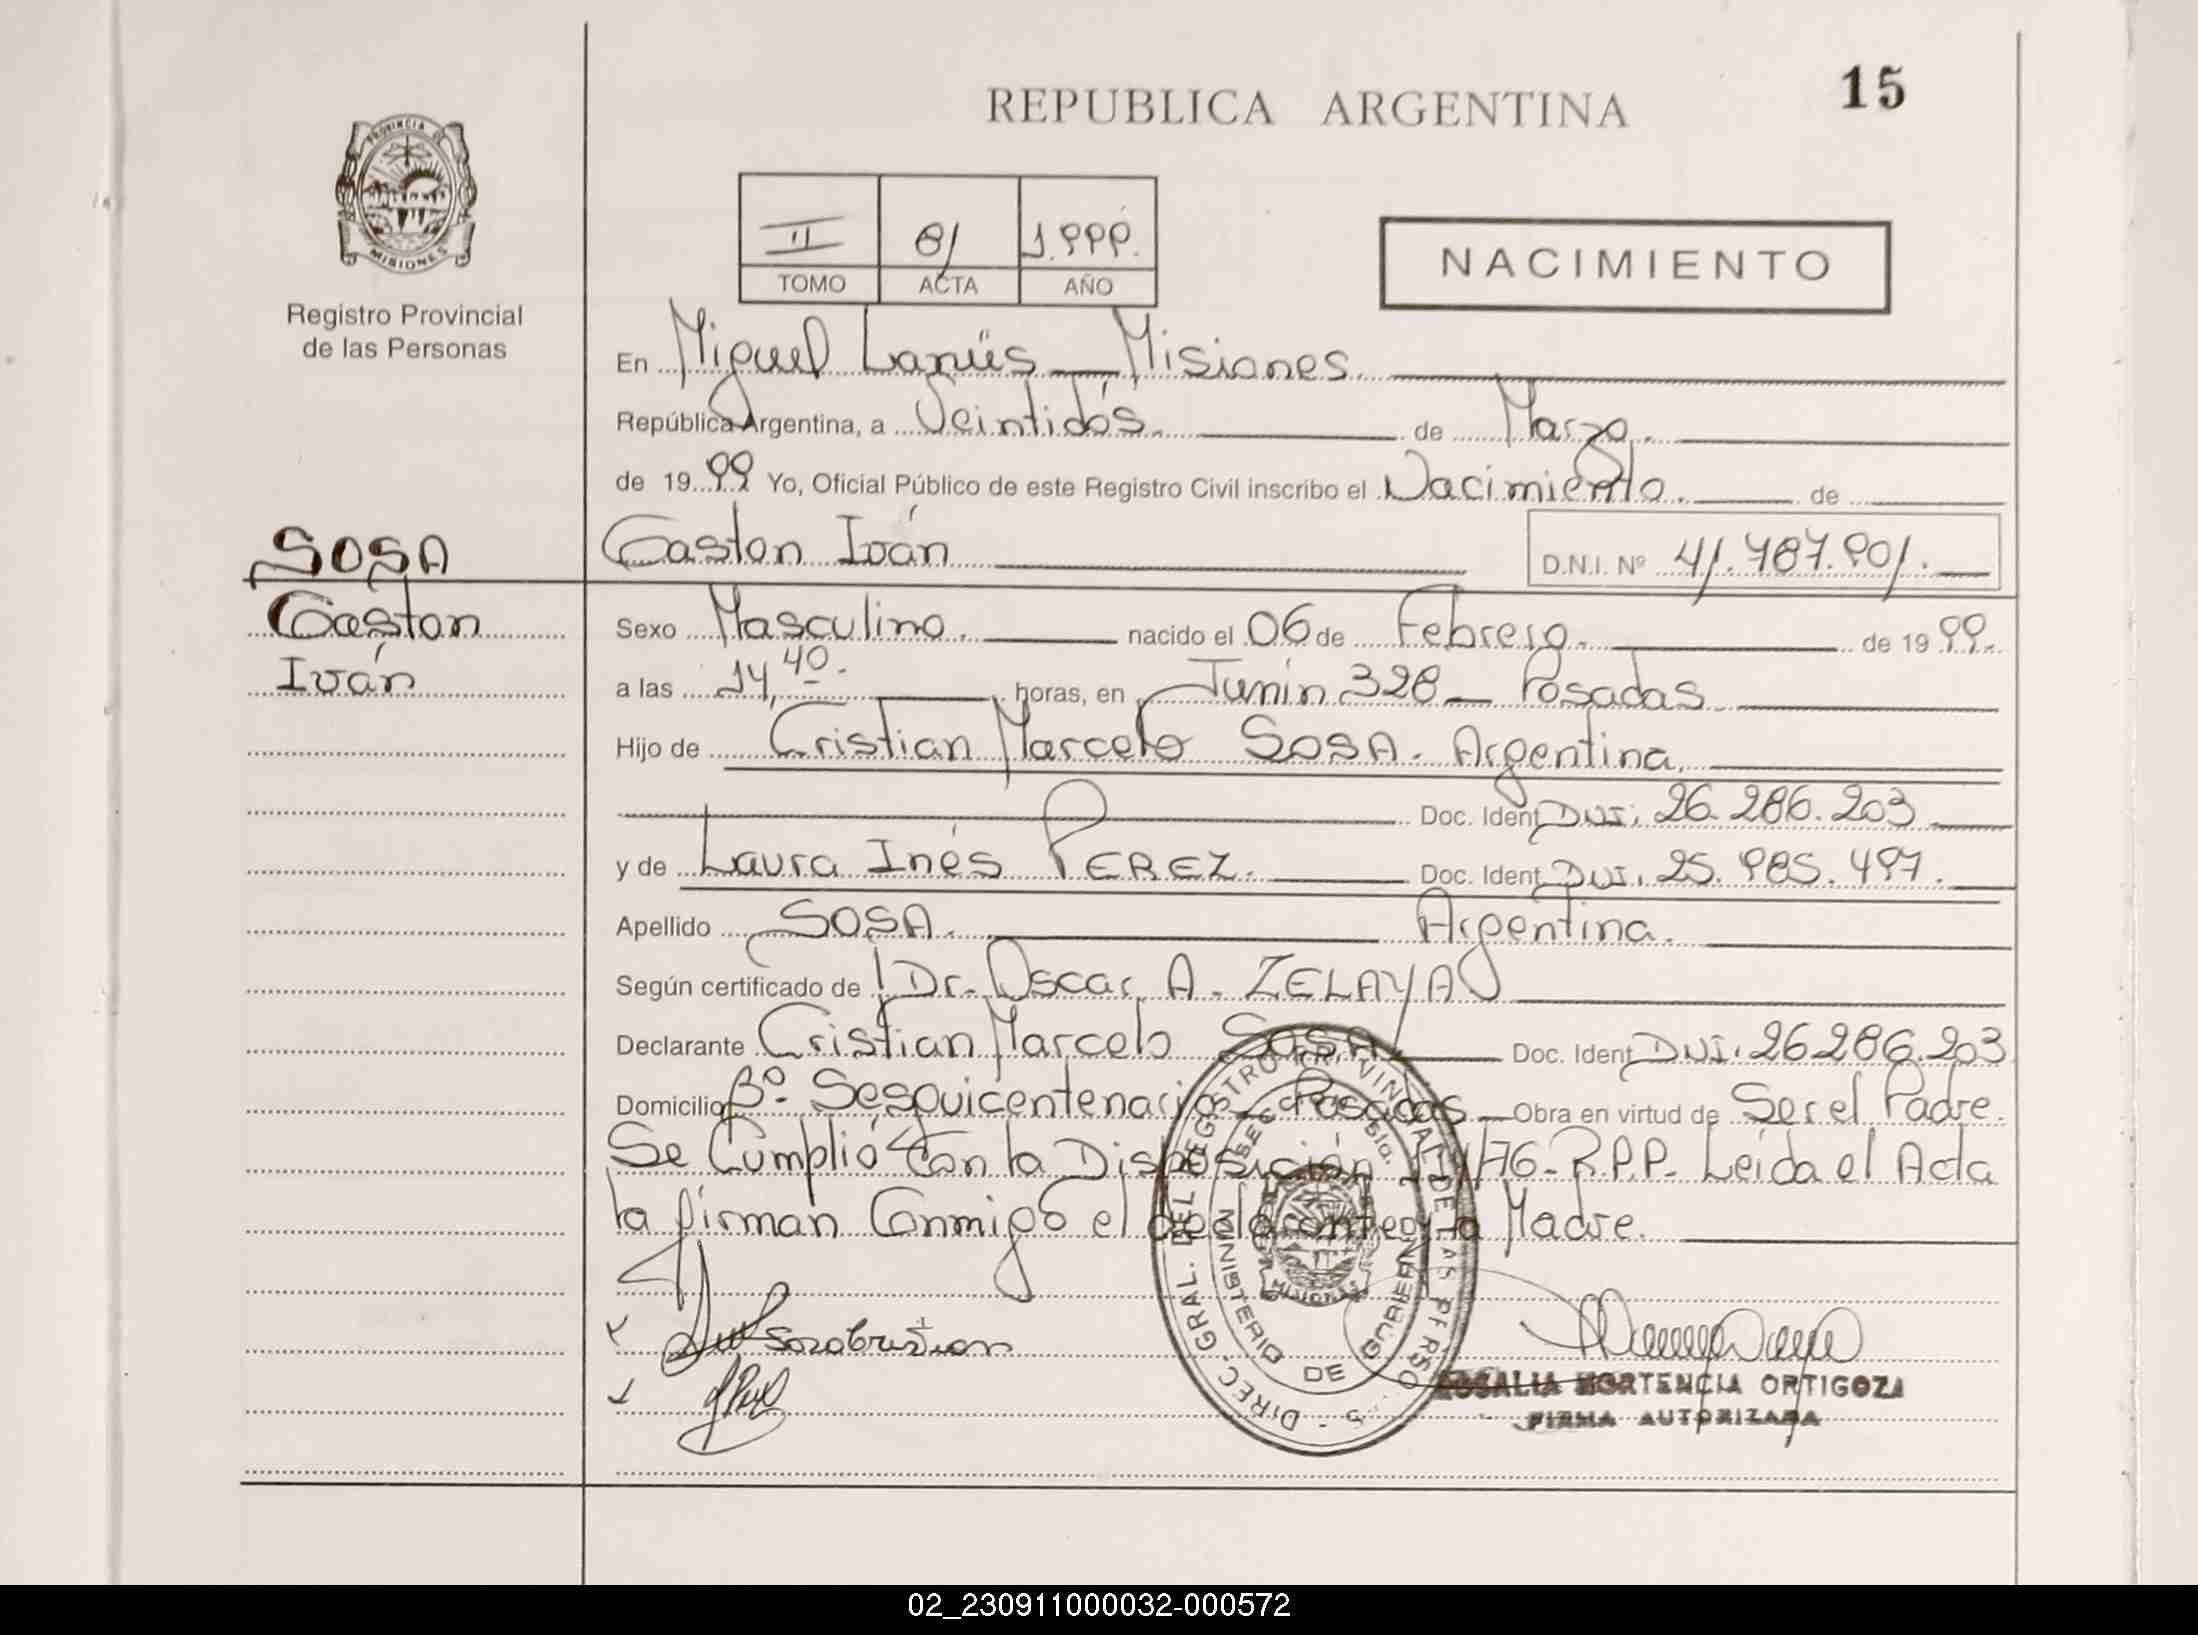 15
REPUBLICA ARGENTINA
PROVINCIA DE
MISIONES
Registro Provincial
de las Personas
II 81 1.999.
TOMO ACTA AÑO
NACIMIENTO
En Miguel Lanús Misiones.
República Argentina, a Veintidós. de Marzo.
de 1999 Yo, Oficial Público de este Registro Civil inscribo el Nacimiento. de
SOSA
Gaston Iván D.N.I. Nº 41.787.901.
Gaston
Iván
Sexo Masculino. nacido el 06 de Febrero. de 1999.
a las 14,40. horas, en Junín 328 Posadas
Hijo de Cristian Marcelo SOSA. Argentina.
Doc. Ident DNI. 26.286.203
y de Laura Inés PEREZ. Doc. Ident DNI. 25.985.497.
Apellido SOSA. Argentina.
Según certificado de Dr. Oscar A. ZELAYA
Declarante Cristian Marcelo SOSA Doc. Ident DNI. 26286.203
Domicilio Bº. Sesquicentenario Posadas Obra en virtud de Ser el Padre.
Se Cumplió Con la Disposición /76-R.P.P. Leída el Acta
la firman Conmigo el declarante y la Madre.
DIREC. GRAL. DEL REGISTRO PROVINCIAL DE LAS PERSO S
MINISTERIO DE GOBIERNO
Sosa Cristian
ROSALIA HORTENCIA ORTIGOZA
FIRMA AUTORIZADA
02_230911000032-000572